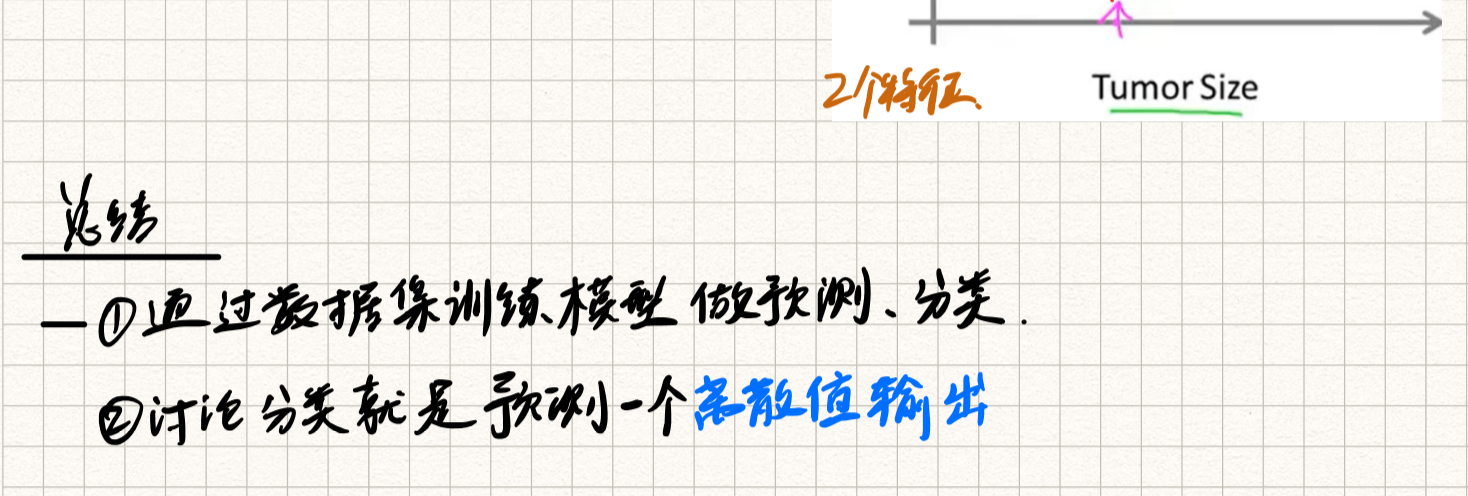 2个特征.
Tumor Size
总结
一①通过数据集训练模型 做预测、分类.
②讨论分类就是预测一个离散值输出